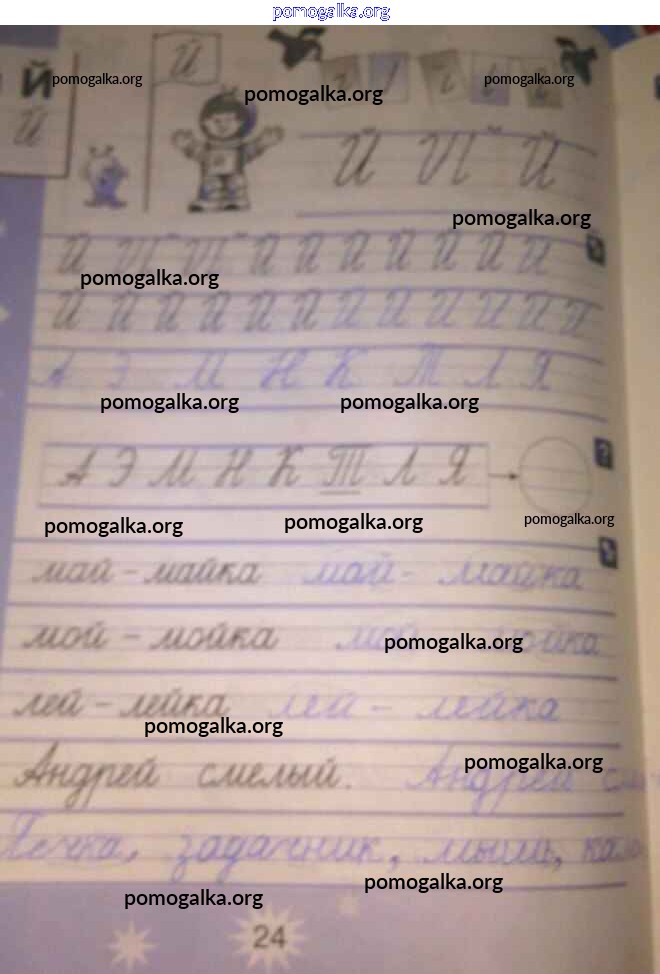 pomogalka.org
Й Й
pomogalka.org pomogalka.org pomogalka.org
Й
Й Й Й
pomogalka.org
Й Й Й Й Й Й Й Й Й Й Й
pomogalka.org
Й Й Й Й Й Й Й Й Й Й Й Й
А Э М Н К Т Л Я
pomogalka.org pomogalka.org
А Э М Н К Т Л Я
pomogalka.org pomogalka.org pomogalka.org
май – майка май - майка
мой – мойка мой мойка
pomogalka.org
лей – лейка лей - лейка
pomogalka.org
Андрей смелый. Андрей
pomogalka.org
Печка, задачник, мышь,
pomogalka.org pomogalka.org
24